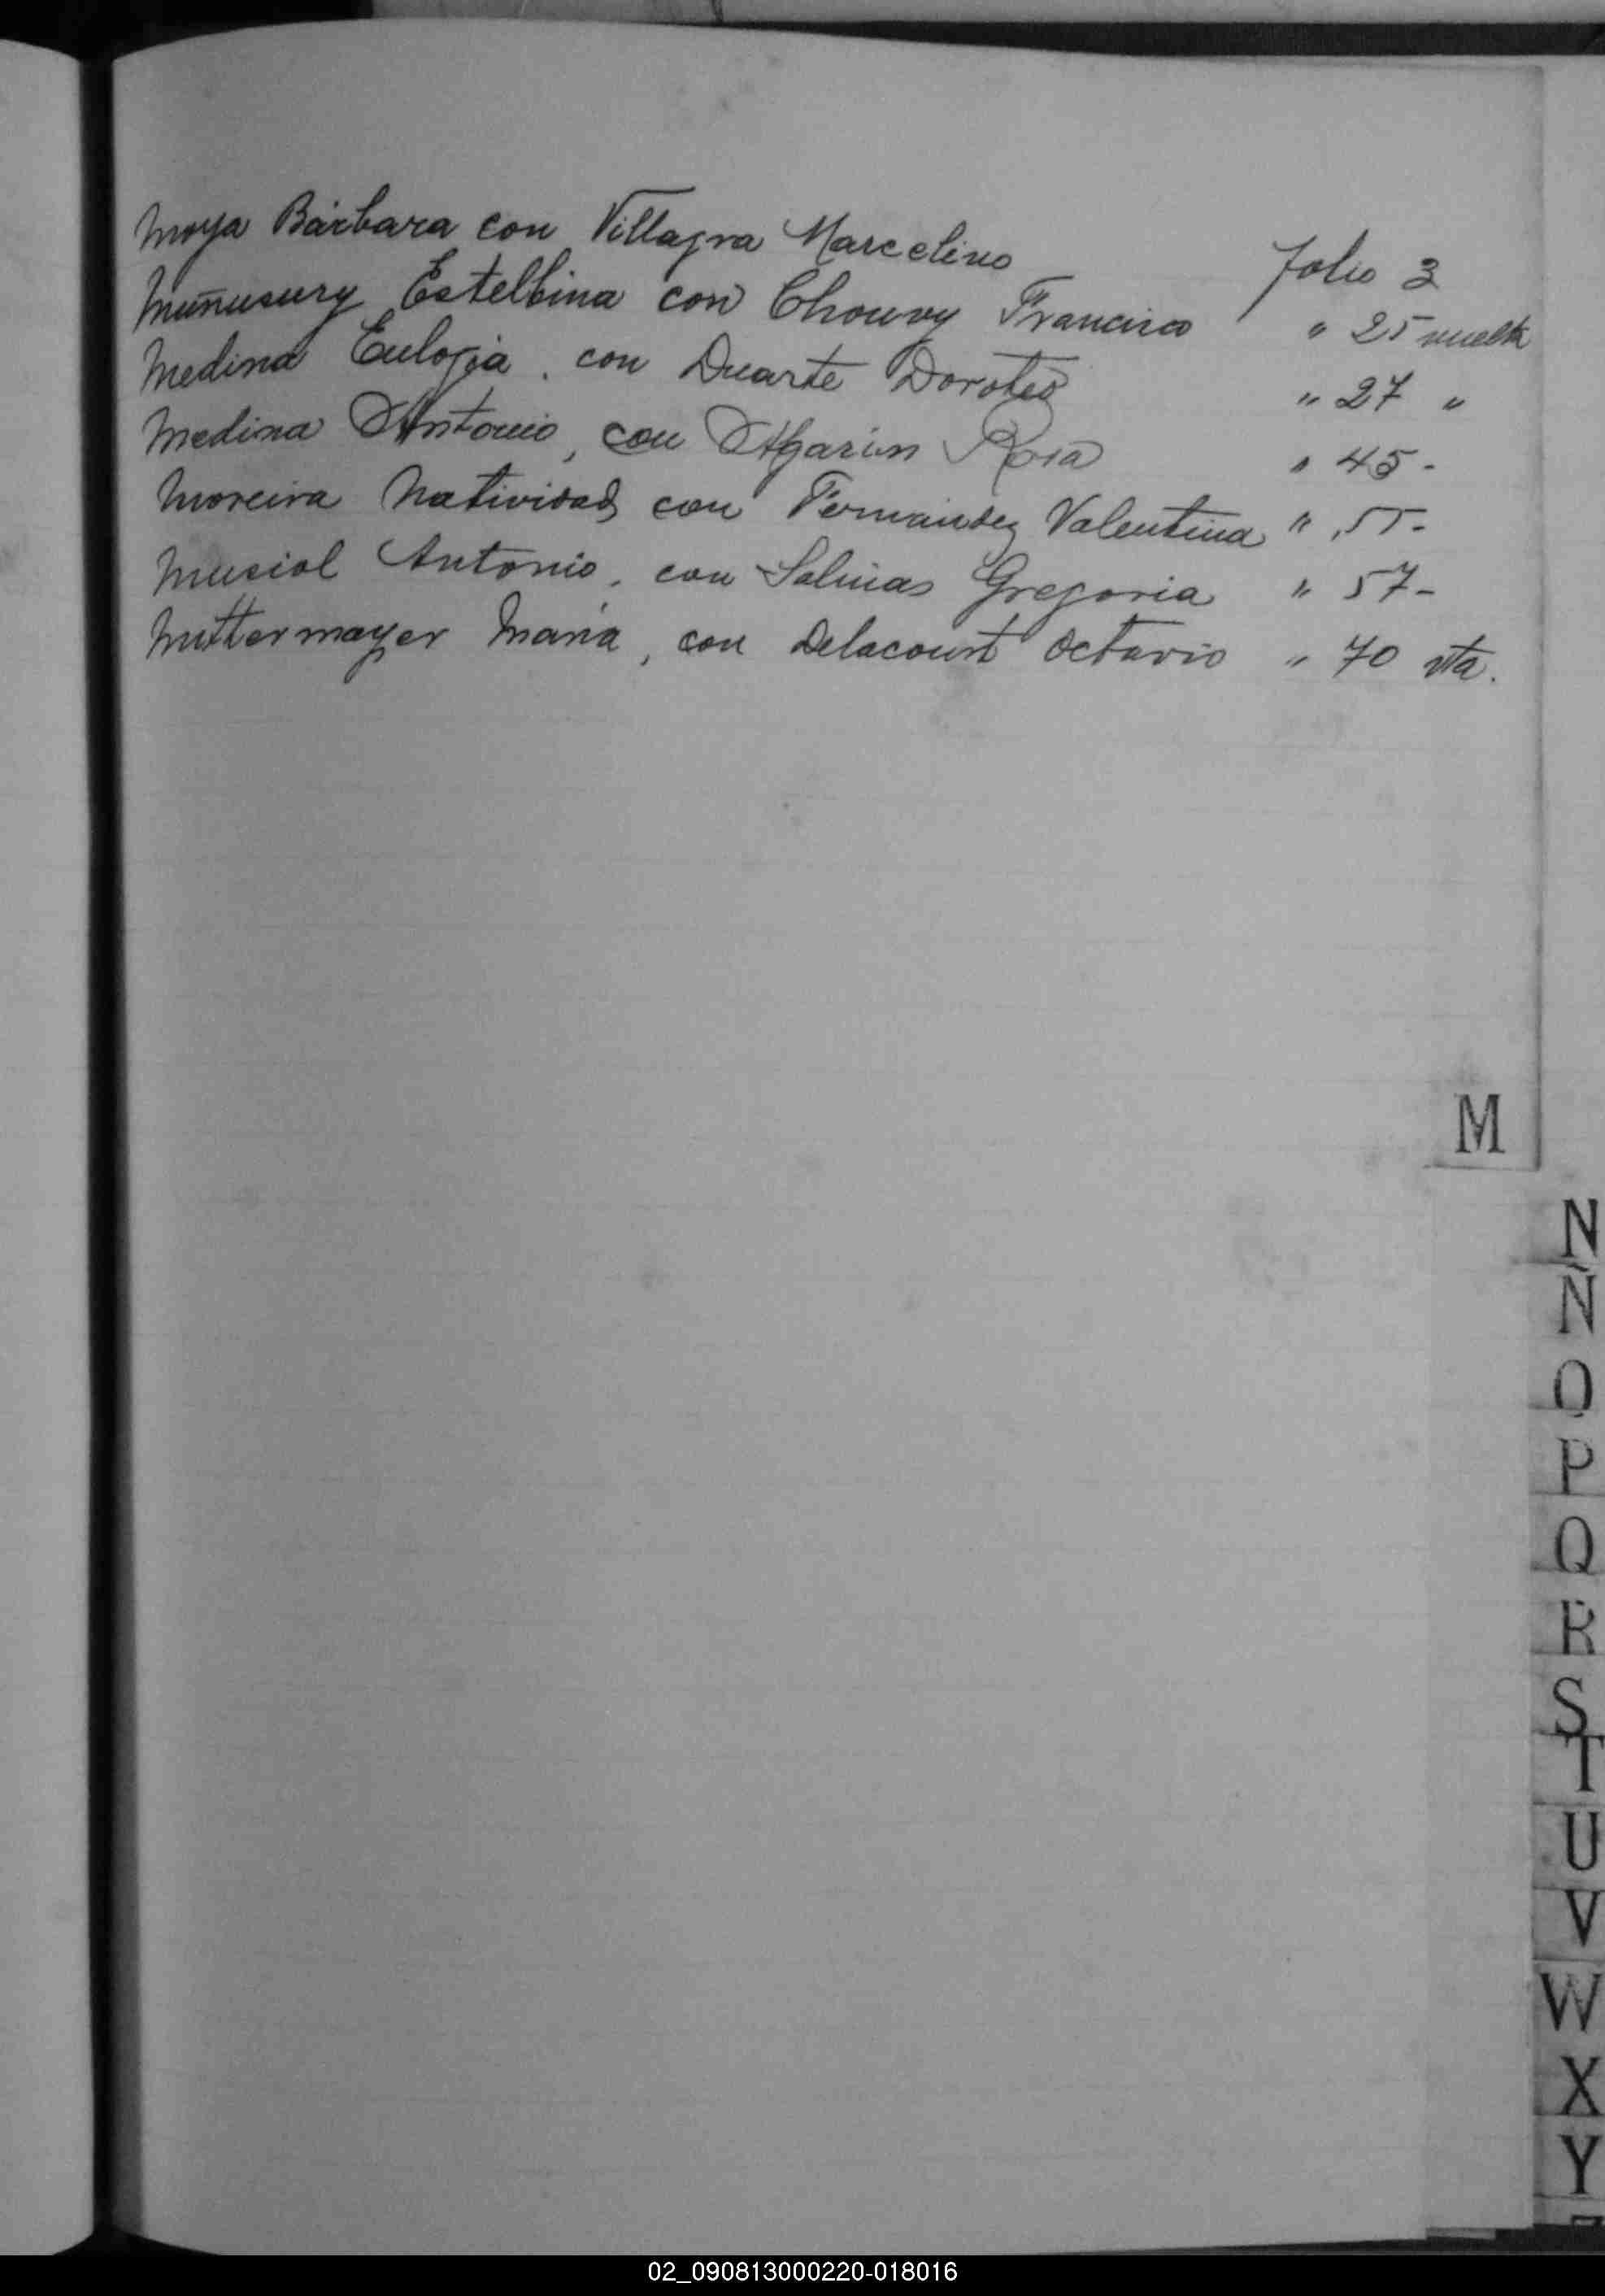 Moya Bárbara con Villagra Marcelino folio 3
Muñusury Estelbina con Chouvy Francisco " 25 vuelta
Medina Eulogia, con Duarte Doroteo " 27 "
Medina Antonio, con Agarin Rosa " 45 -
Moreira Natividad con Fernández Valentina " 55 -
Musiol Antonio, con Salinas Gregoria " 57 -
Mittermayer María, con Delacourt Octavio " 70 vta.
M
N
Ñ
O
P
Q
R
S
T
U
V
W
X
Y
02_090813000220-018016